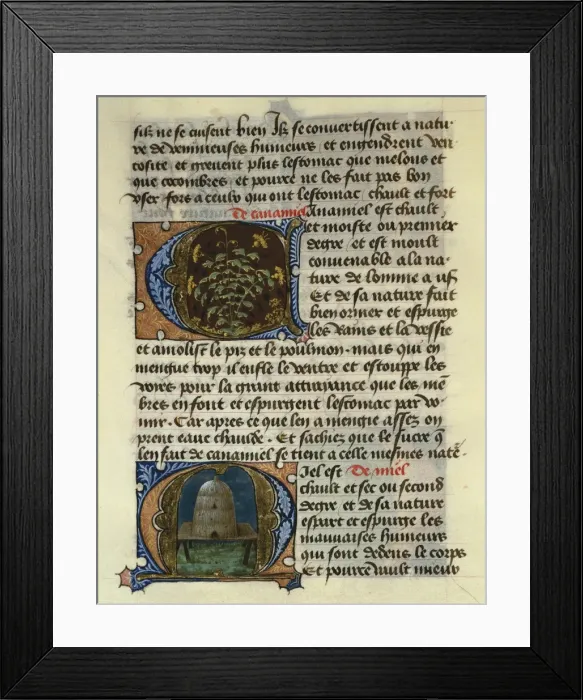 silz ne se cuisent bien Ilz se convertissent a natu-
re de venimeuses humeurs et engendrent ven
cosite et grevent plus lestomac que melons et
que cocombres et pource ne les fait pas bon
user fors a ceulx qui ont lestomac chault et fort
De canamiel
Canamiel est chault
et moiste ou premier
degre et est moult
convenable a la na-
ture de lomme a us
Et de sa nature fait
bien oriner et espurge
les rains et la vessie
et amolist le piz et le poulmon. mais qui en
mengue trop il enfle le ventre et estouppe les
voies pour la grant attrapance que les mē
bres en font et espurgent lestomac par vo-
mir. Car apres ce que len a mengie assez on
prent eaue chaude. Et sachiez que le sucre q̄
len fait de canamiel se tient a celle mesmes natē.
De miel
Miel est
chault et sec ou second
degre et de sa nature
espart et espurge les
mauvaises humeurs
qui sont dedens le corps
Et pource vault mieux